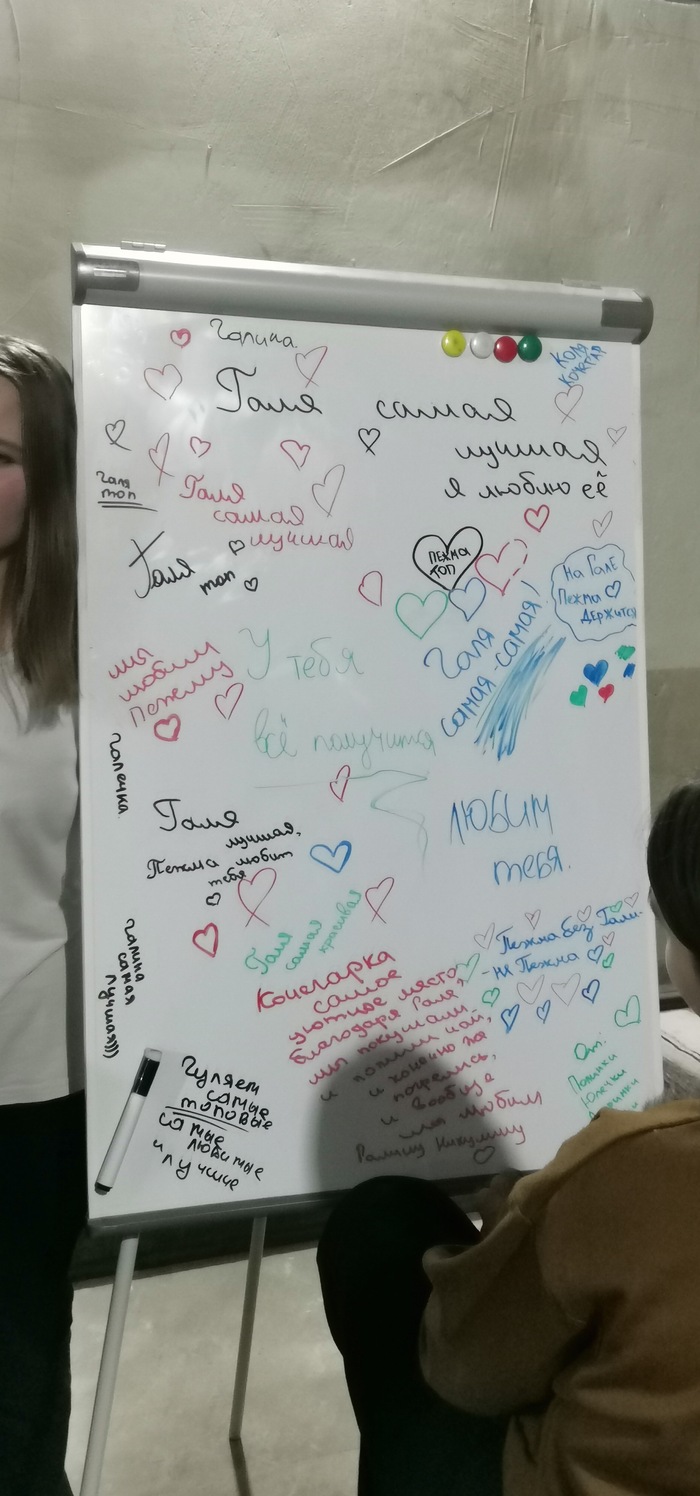 Галина.
Коля
кочегар
Галя самая
лучшая
я люблю её
Галя
топ
Галя
самая
лучшая
Галя
топ
ПЕЖМА
ТОП
На Гале
Пежма
держится
мы
любим
Пежму
У тебя
всё получится
Галя
самая-самая!
Галечка.
Галя
лучшая,
Пежма любит
тебя
ЛЮБИМ
тебя.
Галя
самая
красивая
Галина
самая
лучшая)))
Пежма без Гали-
- не Пежма
Кочегарка
самое
уютное место
благодаря Гале,
мы покушали
и попили чай,
и конечно же
погрелись,
и вообще
мы любим
Галину Никулину
От:
Полинки
Юлечки
Гуляем
самые
топовые
самые
любимые
и лучшие